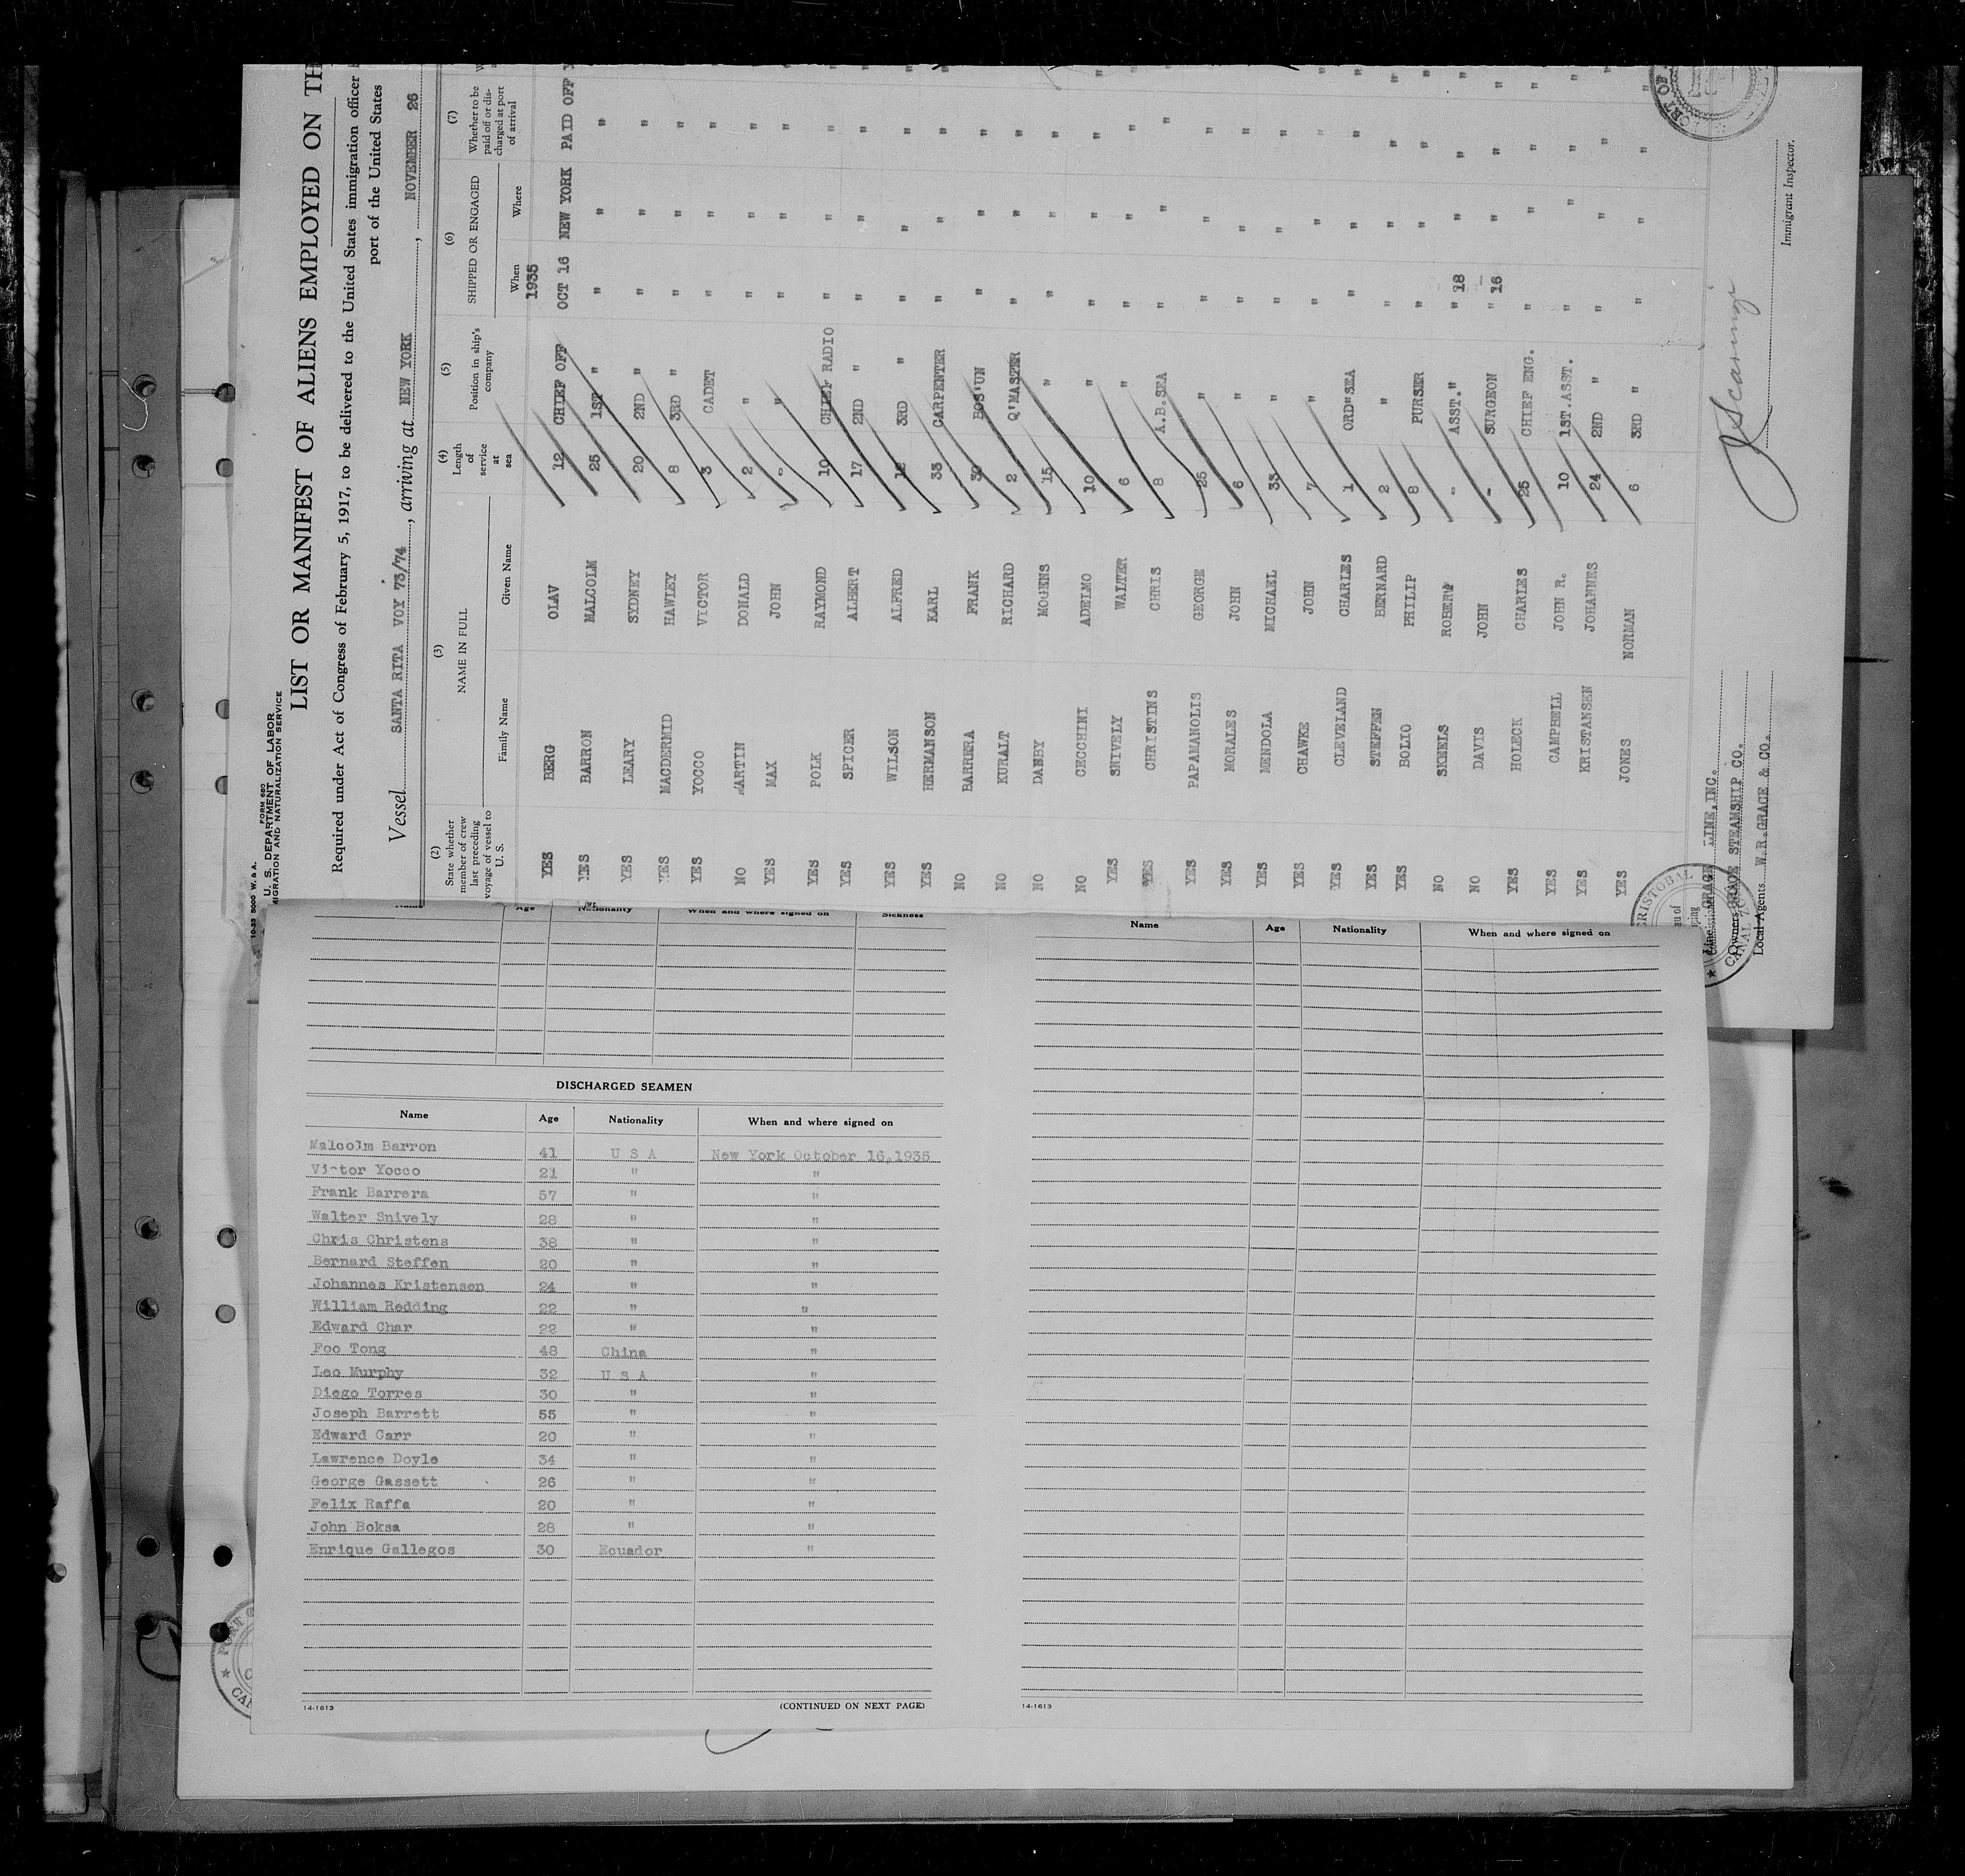 10-33 5000 W. & A.
FORM 680
U. S. DEPARTMENT OF LABOR
MIGRATION AND NATURALIZATION SERVICE
LIST OR MANIFEST OF ALIENS EMPLOYED ON TH
Required under Act of Congress of February 5, 1917, to be delivered to the United States immigration officer
port of the United States
Vessel SANTA RITA VOY 73/74, arriving at NEW YORK, NOVEMBER 26
(2) State whether member of crew last preceding voyage of vessel to U. S. (3) NAME IN FULL Family Name Given Name (4) Length of service at sea (5) Position in ship's company (6) SHIPPED OR ENGAGED When Where (7) Whether to be paid off or discharged at port of arrival
1935
YES BERG OLAV 12 CHIEF OFF OCT 16 NEW YORK PAID OFF
YES BARRON MALCOLM 25 1ST " " " "
YES LEARY SYDNEY 20 2ND " " " "
YES MACDERMID HAWLEY 8 3RD " " " "
YES YOCCO VICTOR 3 CADET " " "
NO MARTIN DONALD 2 " " " "
YES MAX JOHN - " " " "
YES POLK RAYMOND 10 CHIEF RADIO " " "
YES SPICER ALBERT 17 2ND " " " "
YES WILSON ALFRED 12 3RD " " " "
YES HERMANSON KARL 33 CARPENTER " " "
NO BARRERA FRANK 30 BOS'UN " " "
NO KURALT RICHARD 2 Q'MASTER " " "
NO DANBY MOGENS 15 " " " "
NO CECCHINI ADELMO 10 " " " "
YES SNIVELY WALTER 6 " " " "
YES CHRISTINS CHRIS 8 A.B.SEA " " "
YES PAPAMANOLIS GEORGE 25 " " " "
YES MORALES JOHN 6 " " " "
YES MENDOLA MICHAEL 33 " " " "
YES CHAWKE JOHN 7 " " " "
YES CLEVELAND CHARLES 1 ORD"SEA " " "
YES STEFFEN BERNARD 2 " " " "
YES BOLIO PHILIP 8 PURSER " " "
NO SKEELS ROBERT - ASST." " 18 " "
NO DAVIS JOHN - SURGEON " 16 " "
YES HOLECK CHARLES 25 CHIEF ENG. " " "
YES CAMPBELL JOHN R. 10 1ST.ASST. " " "
YES KRISTANSEN JOHANNES 24 2ND " " " "
YES JONES NORMAN 6 3RD " " " "
Line GRACE LINE, INC.
Owners GRACE STEAMSHIP CO.
Local Agents W.R.GRACE & CO.
Immigrant Inspector.
Name Age Nationality When and where signed on Sickness
DISCHARGED SEAMEN
Name Age Nationality When and where signed on
Malcolm Barron 41 U S A New York October 16,1935
Victor Yocco 21 " "
Frank Barrera 57 " "
Walter Snively 28 " "
Chris Christens 38 " "
Bernard Steffen 20 " "
Johannes Kristensen 24 " "
William Redding 22 " "
Edward Char 22 " "
Foo Tong 48 China "
Leo Murphy 32 U S A "
Diego Torres 30 " "
Joseph Barrett 55 " "
Edward Carr 20 " "
Lawrence Doyle 34 " "
George Gassett 26 " "
Felix Raffa 20 " "
John Boksa 28 " "
Enrique Gallegos 30 Ecuador "
14-1613
(CONTINUED ON NEXT PAGE)
Name Age Nationality When and where signed on
14-1613